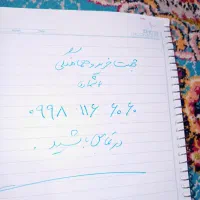 جهت خرید و هماهنگی
با شماره
۰۹۹۸ ۱۱۶ ۶۰۶۰
در تماس باشید.